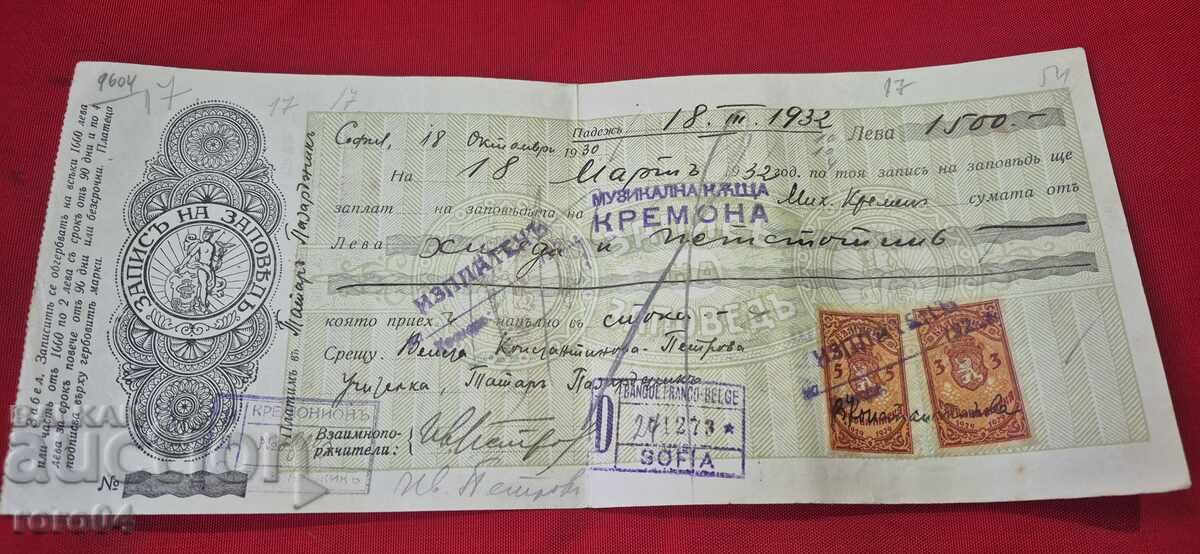 9604
17
17
17
17
54
Забел. Записитѣ се обгербватъ на всѣки 1660 лева
или часть отъ 1660 по 2 лева съ срокъ отъ 90 дни и по 4
лева за срокъ повече отъ 90 дни или безсрочни. Платеца
подписва върху гербовитѣ марки.
ЗАПИСЪ НА ЗАПОВѢДЬ
№
Платимъ въ Татаръ Пазарджикъ
София, 18 Октомври 1930 Падежъ 18. III. 1932 Лева 1500.-
На 18 Мартъ 1932 год. по тоя записъ на заповѣдь ще
заплат на заповѣдьта на МУЗИКАЛНА КѪЩА КРЕМОНА Мих. Кремен сумата отъ
Лева Хиляда и петстотинъ
която приех напълно въ стока
Срещу Венета Константинова Петрова
Учителка, Татаръ Пазарджикъ
Взаимнопо-
ржчители:
Ив. Петров
ИЗПЛАТЕНЪ
ИЗПЛАТЕНЪ
КРЕМОНИОНЪ
BANQUE FRANCO-BELGE
241273 *
SOFIA
БЪЛГАРИЯ
5 5
3 3
1879 1929
bazar
auction
roro04